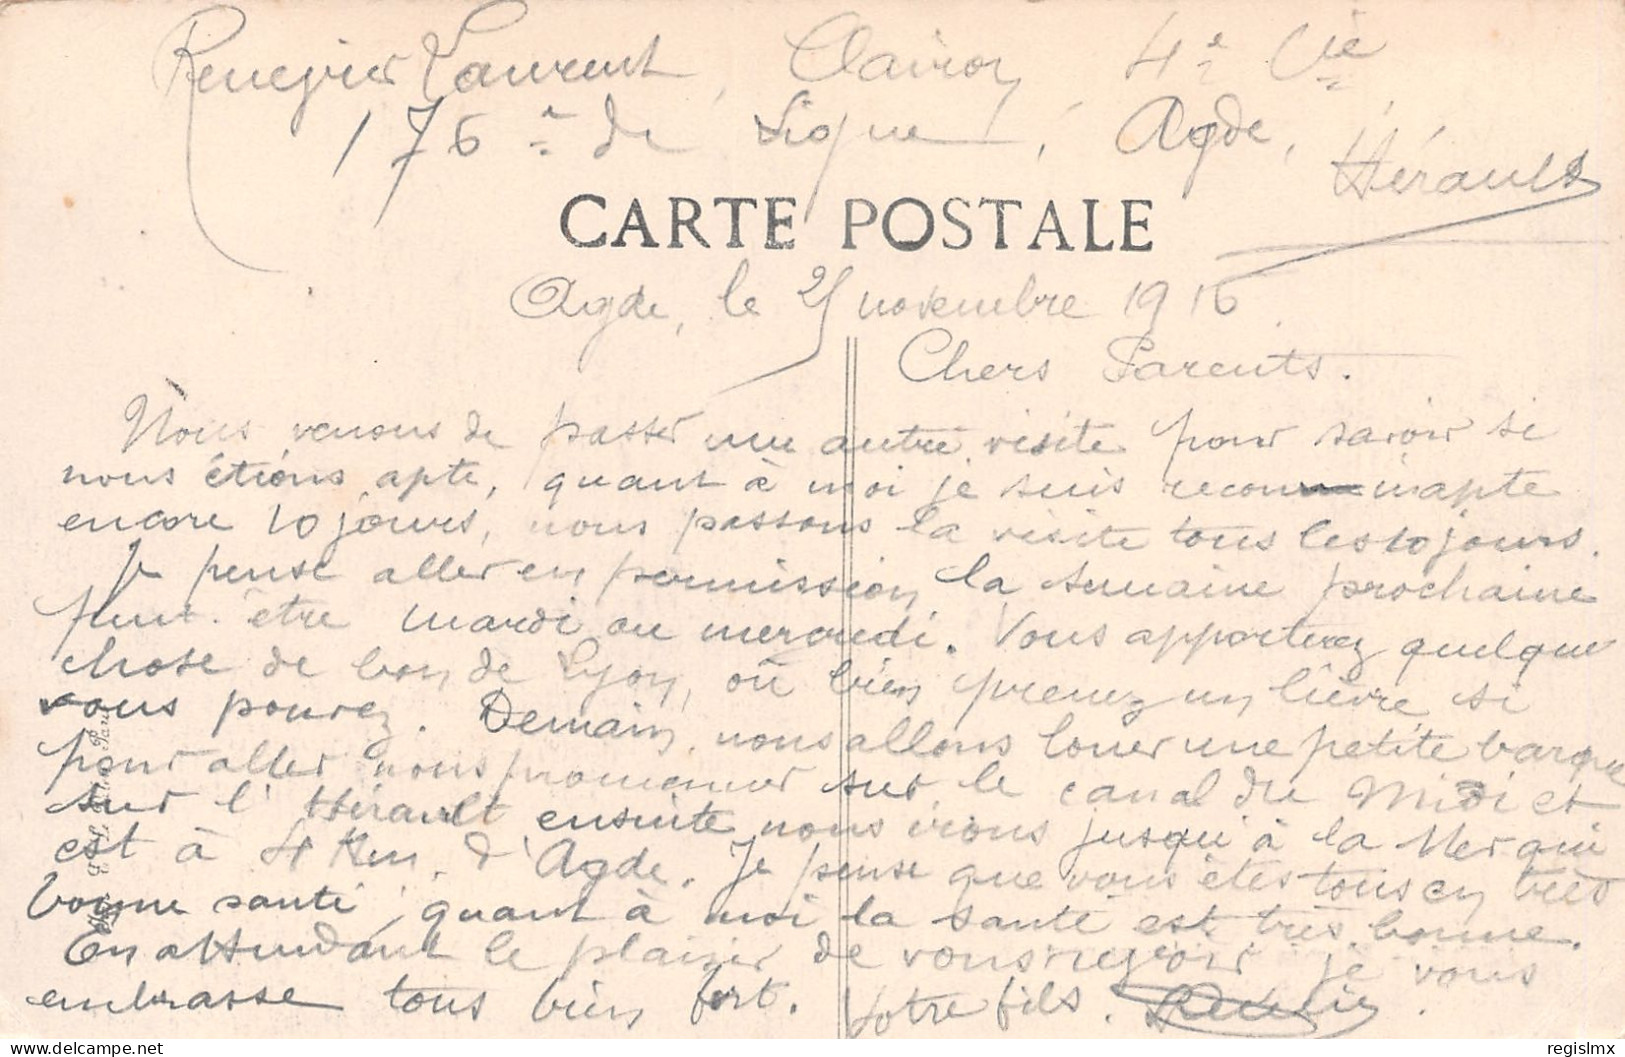 Laurent, Clairon, 4e Cie,
176e de Ligne, Agde, Hérault
CARTE POSTALE
Agde, le 25 novembre 1916.
Chers Parents.
Nous venons de passer une autre visite pour savoir si
nous étions apte, quant à moi je suis reconnu inapte
encore 10 jours, nous passons la visite tous les 10 jours.
Je pense aller en permission la semaine prochaine
peut-être mardi ou mercredi. Vous apporterez quelque
chose de bon de Lyon, où bien prenez un lièvre si
vous pouvez. Demain, nous allons louer une petite barque
pour aller nous promener sur le canal du Midi et
sur l'Hérault ensuite nous irons jusqu'à la Mer qui
est à 4 Km. d'Agde. Je pense que vous êtes tous en très
bonne santé, quant à moi la santé est très bonne.
En attendant le plaisir de vous revoir je vous
embrasse tous bien fort. Votre fils.
Paris
regislmx